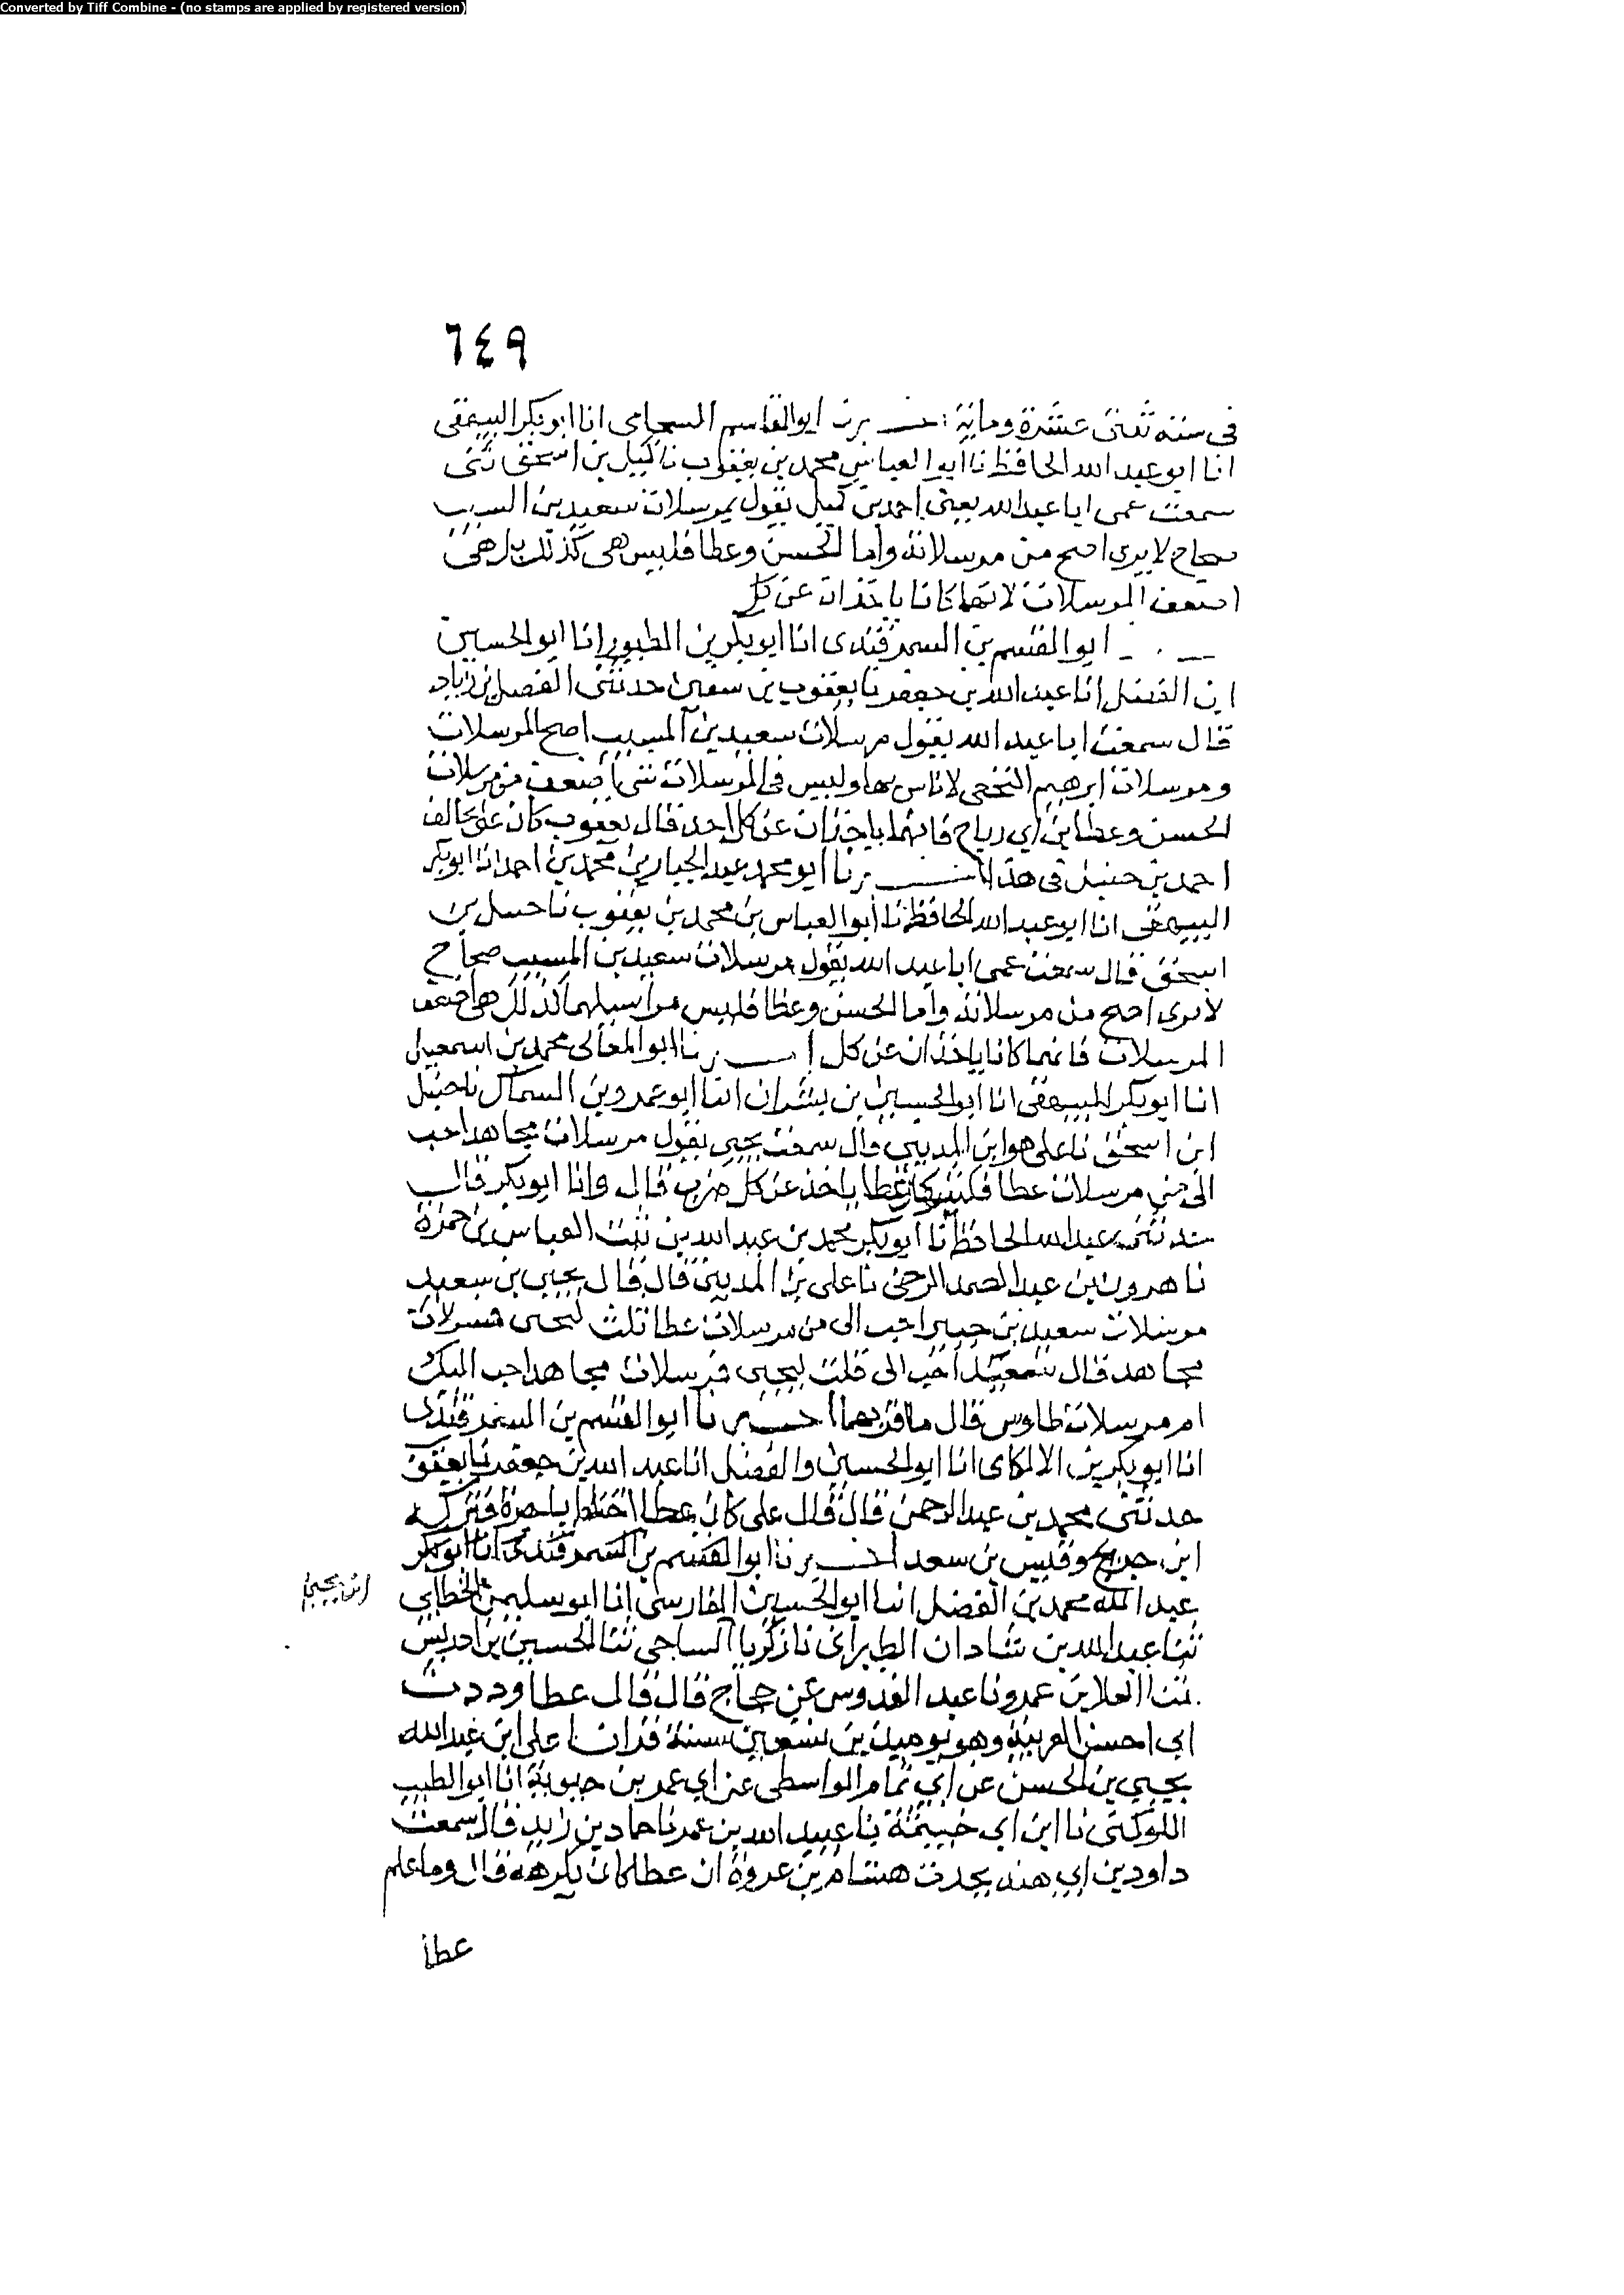 Converted by Tiff Combine - (no stamps are applied by registered version)
٦٤٩
في سنة ثنتى عشرة ومائة ابو القاسم السحامى انا ابو بكر البيهقى
انا ابو عبد الله الحافظ نا ابو العباس محمد بن يعقوب نا بن اسحق ثنى
سمعت عمى ابا عبد الله يعنى احمد بن يقول مرسلات سعيد بن المسيب
صحاح لا يرى اصح من مرسلاته واما الحسن وعطا فليس هى كذلك بل هى
اضعف المرسلات لانهما كانا ياخذان عن كل
ابو القسم بن السمرقندى انا ابو بكر بن الطبور انا ابو الحسين
ابن الفضل انا عبد الله بن جعفر نا يعقوب بن سفين حدثنى الفضل بن زياد
قال سمعت ابا عبد الله يقول مرسلات سعيد بن المسيب اصح المرسلات
ومرسلات ابرهيم النخعى لا باس بها وليس فى المرسلات شى اضعف من مرسلات
الحسن وعطا بن ابي رباح فانهما ياخذان عن كل احد قال يعقوب كان على يخالف
احمد بن حنبل فى هذا برنا ابو محمد عبد الجبار بن محمد بن احمد انا ابو بكر
البيهقى انا ابو عبد الله الحافظ نا ابو العباس بن محمد بن يعقوب نا حنبل بن
اسحق قال سمعت عمى ابا عبد الله يقول مرسلات سعيد بن المسيب صحاح
لا نرى اصح من مرسلاته واما الحسن وعطا فليس مراسيلهما كذلك هى اضعف
المرسلات فانهما كانا ياخذان عن كل برنا ابو المعالى محمد بن اسمعيل
انا ابو بكر البيهقى انا ابو الحسين بن بشران انا ابو عمرو بن السماك نا حنبل
ابن اسحق نا على هو ابن المدينى قال سمعت يحيى يقول مرسلات مجاهد احب
الى من مرسلات عطا كان عطا ياخذ عن كل ضرب قال وانا ابو بكر قال
عبد الله الحافظ نا ابو بكر محمد بن عبد الله بن بنت العباس بن حمزة
نا هرون بن عبد الصمد الرحى نا على بن المدينى قال قال يحيى بن سعيد
مرسلات سعيد بن جبير احب الى من مرسلات عطا قلت ليحيى فمرسلات
مجاهد قال سعيد احب الى قلت ليحيى فمرسلات مجاهد احب اليك
ام مرسلات طاوس قال ما اقربهما اخـــبرنا ابو القسم بن السمرقندى
انا ابو بكر بن الالكاى انا ابو الحسين والفضل انا عبد الله بن جعفر نا يعقوب
حدثنى محمد بن عبد الرحمن قال قال على كان عطا اختلط باخرة فتركه
ابن جريج وقيس بن سعد اخـــبرنا ابو القسم بن السمرقندى انا ابو بكر
عبد الله محمد بن الفضل انا ابو الحسين الفارسى انا ابو سليمن الخطابي
ابن يحيى
ثنا عبد الله بن شاذان الطبرانى نا زكريا الساجى ثنا الحسين بن ادريس
ثنا العلا بن عمرو نا عبد القدوس عن حجاج قال قال عطا وددت
اني احسن العربية وهو يوميذ بن تسعين سنة قرانا على ابن عبد الله
يحيى بن الحسن عن ابي تمام الواسطى عن ابي عمر بن حيوية انا ابو الطيب
الكوكبى نا ابن ابي خيثمة نا عبيد الله بن عمر نا حماد بن زيد قال سمعت
داود بن ابي هند يحدث هشام بن عروة ان عطا كان يكرهه قال وما علم
عطا